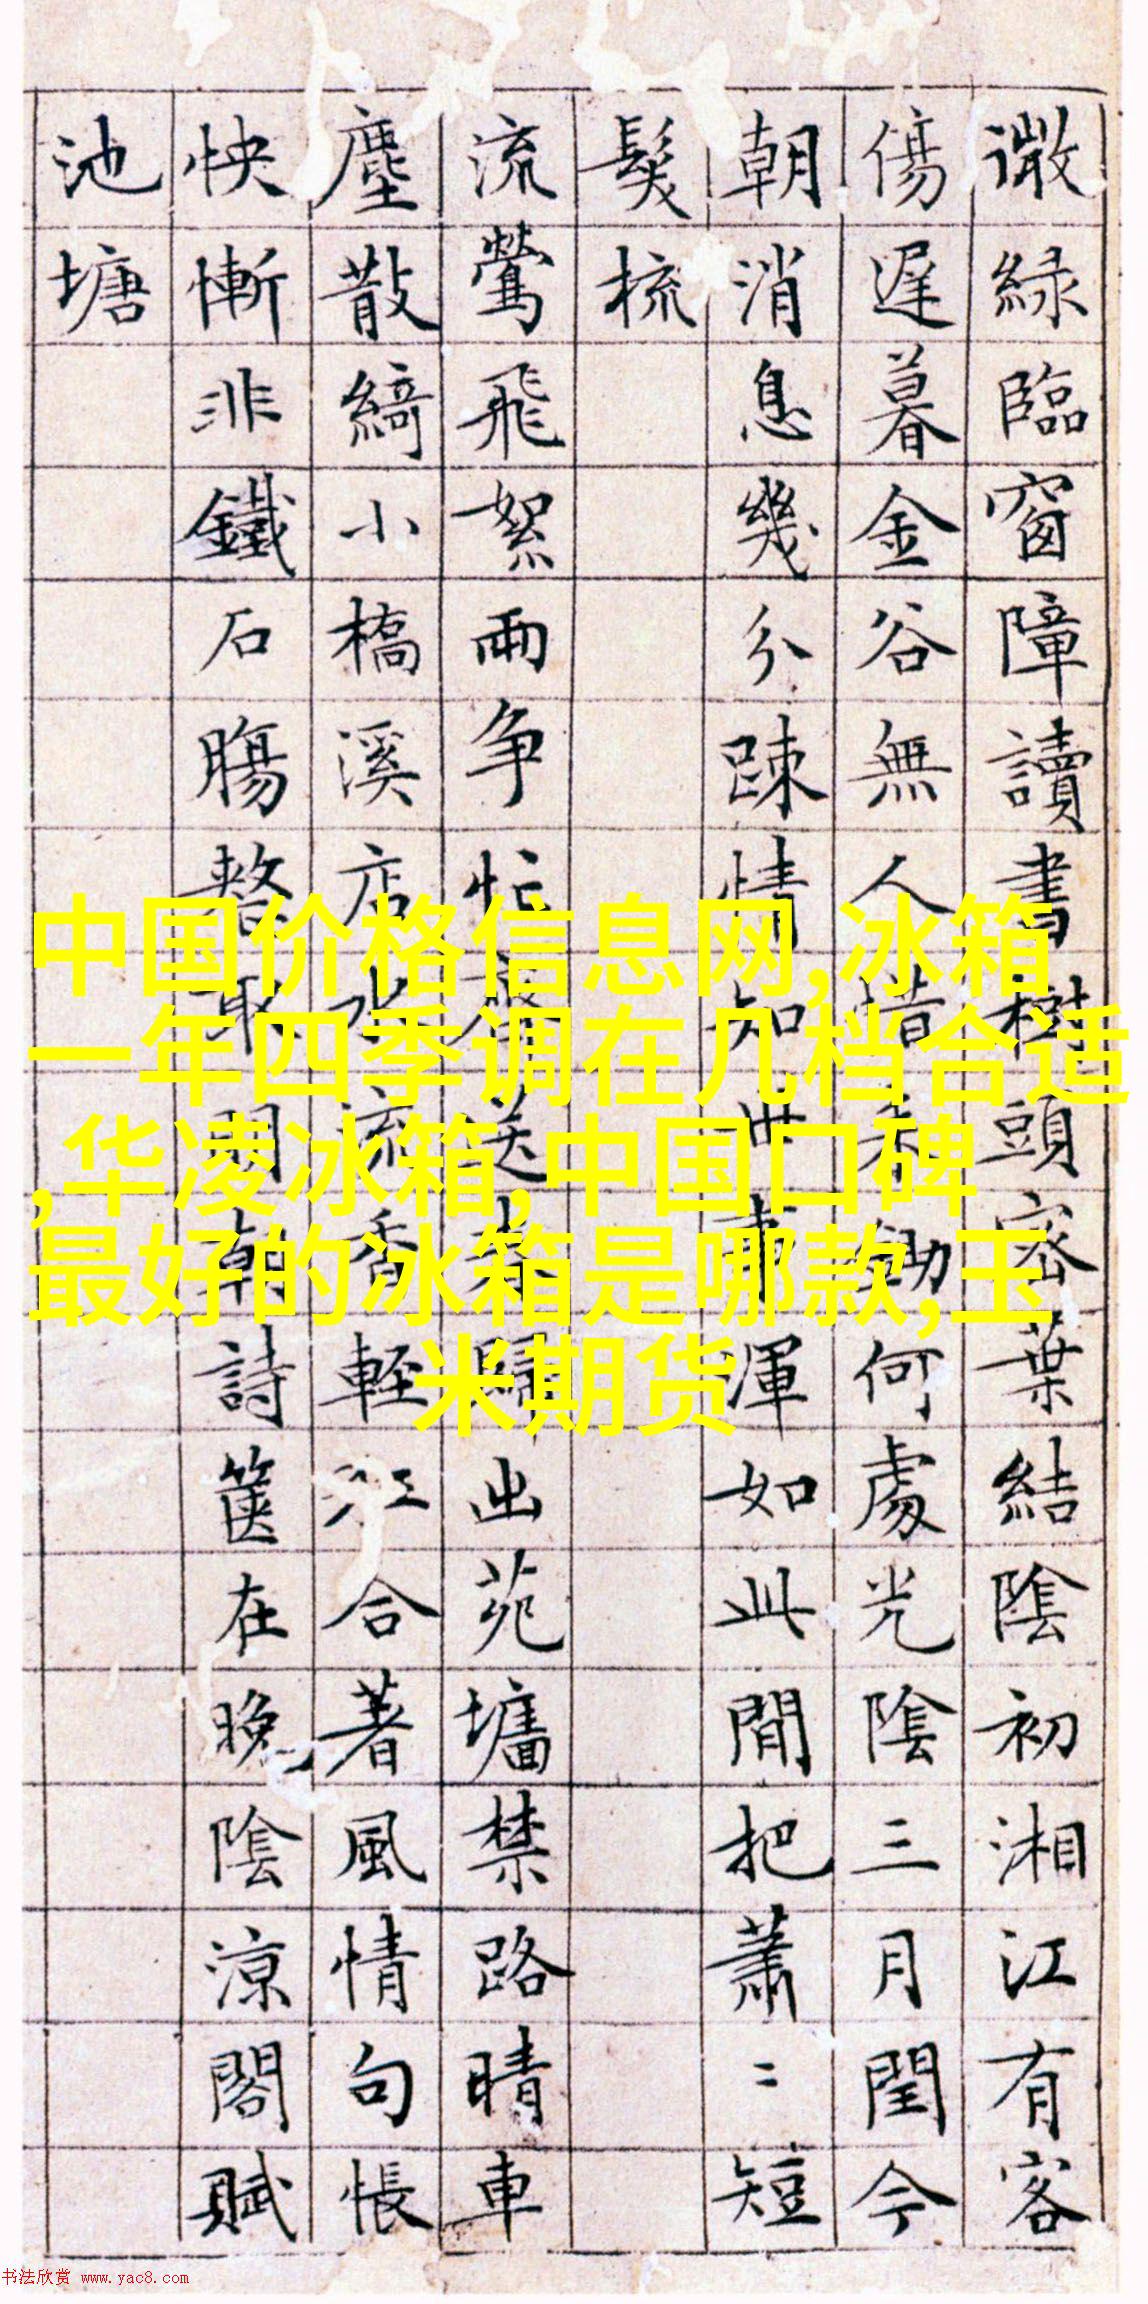 微綠臨窗障讀書樹頭密葉結陰初湘江有客
傷遲暮金谷無人惜鋤何處光陰三月閏今
朝消息幾分疎情知世事渾如此閒把蕭〻短
髮梳
流鶯飛絮兩争忙送春歸出苑墻禁路晴車
塵散綺小橋溪店水流香輕江合著風情句悵
怏慚非鐵石腸整取閒朝詩箧在晚陰涼閣賦
池塘
中国价格信息网,冰箱
一年四季调在几档合适
,华凌冰箱,中国口碑
最好的冰箱是哪款,玉
米期货
书法欣赏 www.yac8.com